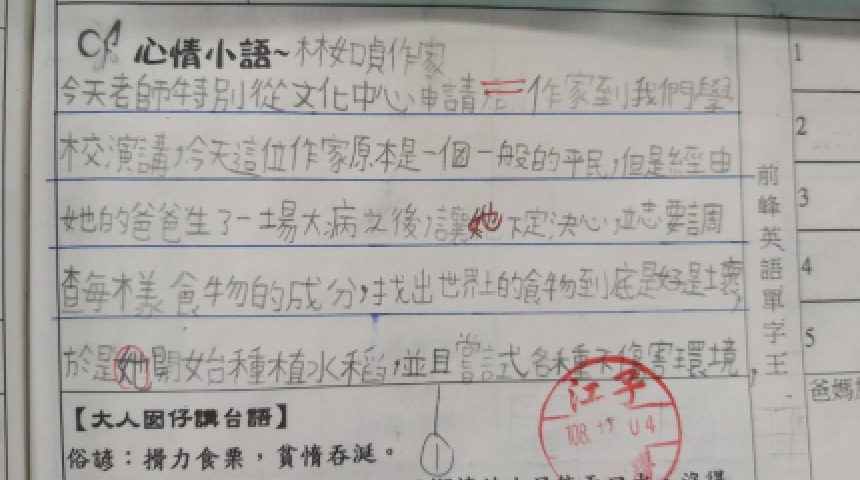 心情小語~林妏頊作家
今天老師特別從文化中心申請 作家到我們學
校演講,今天這位作家原本是一個一般的平民,但是經由
她的爸爸生了一場大病之後,讓她下定決心,立志要調
查每樣食物的成分,找出世界上的食物到底是好是壞,
於是她開始種植水稻,並且嘗試各種不傷害環境,
【大人囡仔講台語】
俗諺:搰力食栗,貧惰吞涎。
①
江子
108. U4
前峰英語單字王
1
2
3
4
5
爸媽